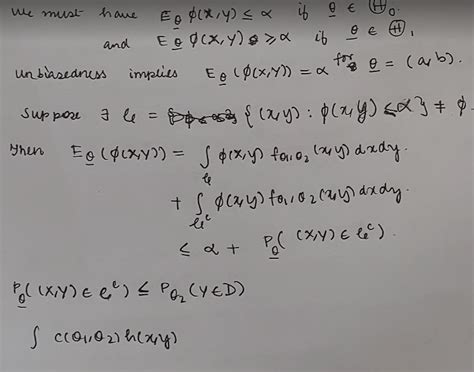 We must have E_θ φ(x,y) ≤ α if θ ∈ Ⓗ₀.
and E_θ φ(x,y) ≥ α if θ ∈ Ⓗ₁
unbiasedness implies E_θ (φ(x,y)) = α for θ = (a,b).
Suppose ∃ = { (x,y) : φ(x,y) < α } ≠ φ.
Then E_θ (φ(x,y)) = ∫ φ(x,y) f_{θ₁,θ₂}(x,y) dxdy.
+ ∫ φ(x,y) f_{θ₁,θ₂}(x,y) dxdy.
≤ α + P_θ( (x,y) ∈ 𝒞ᶜ).
P_θ( (x,y) ∈ 𝒞ᶜ) ≤ P_{θ₂}(Y∈D)
∫ c(θ₁,θ₂) h(x,y)